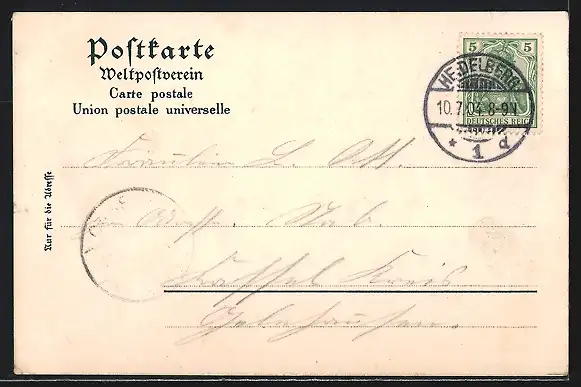 Postkarte
Weltpostverein
Carte postale
Union postale universelle
5 5
DEUTSCHES REICH
HEIDELBERG
10.7.04.8-9.V.
* 1 d
Nur für die Adresse
Fräulein L. Ott.
Kreis
Gelnhausen.